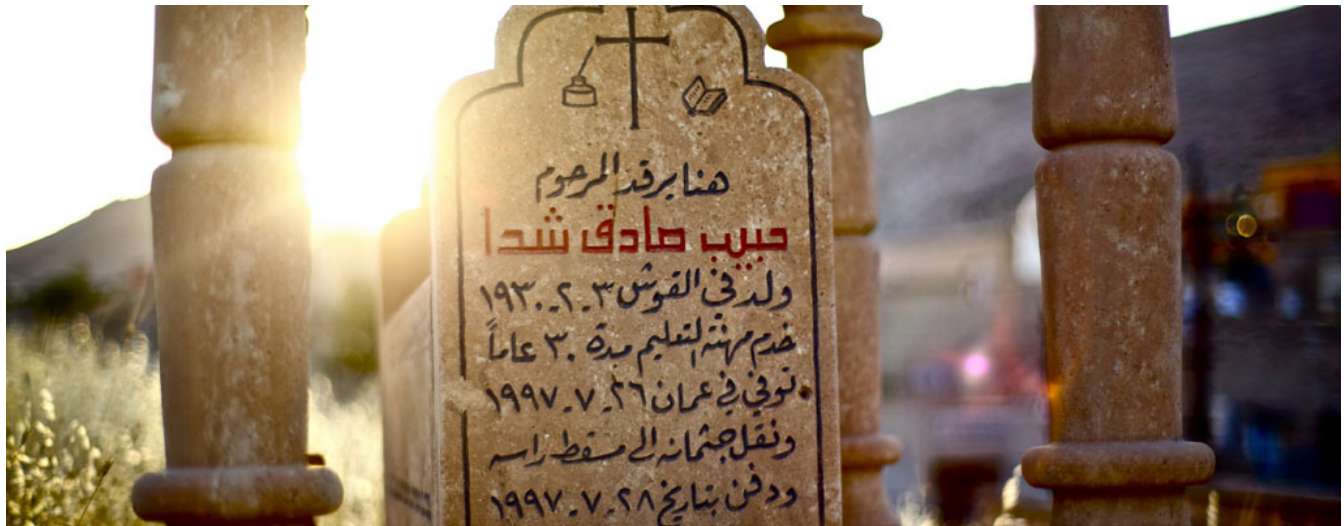 هنا يرقد المرحوم
حبيب صادق شدا
ولد في القوش ٣-٢-١٩٣٠
خدم مهنة التعليم مدة ٣٠ عاماً
توفي في عمان ٢٦-٧-١٩٩٧
ونقل جثمانه الى مسقط راسه
ودفن بتاريخ ٢٨-٧-١٩٩٧